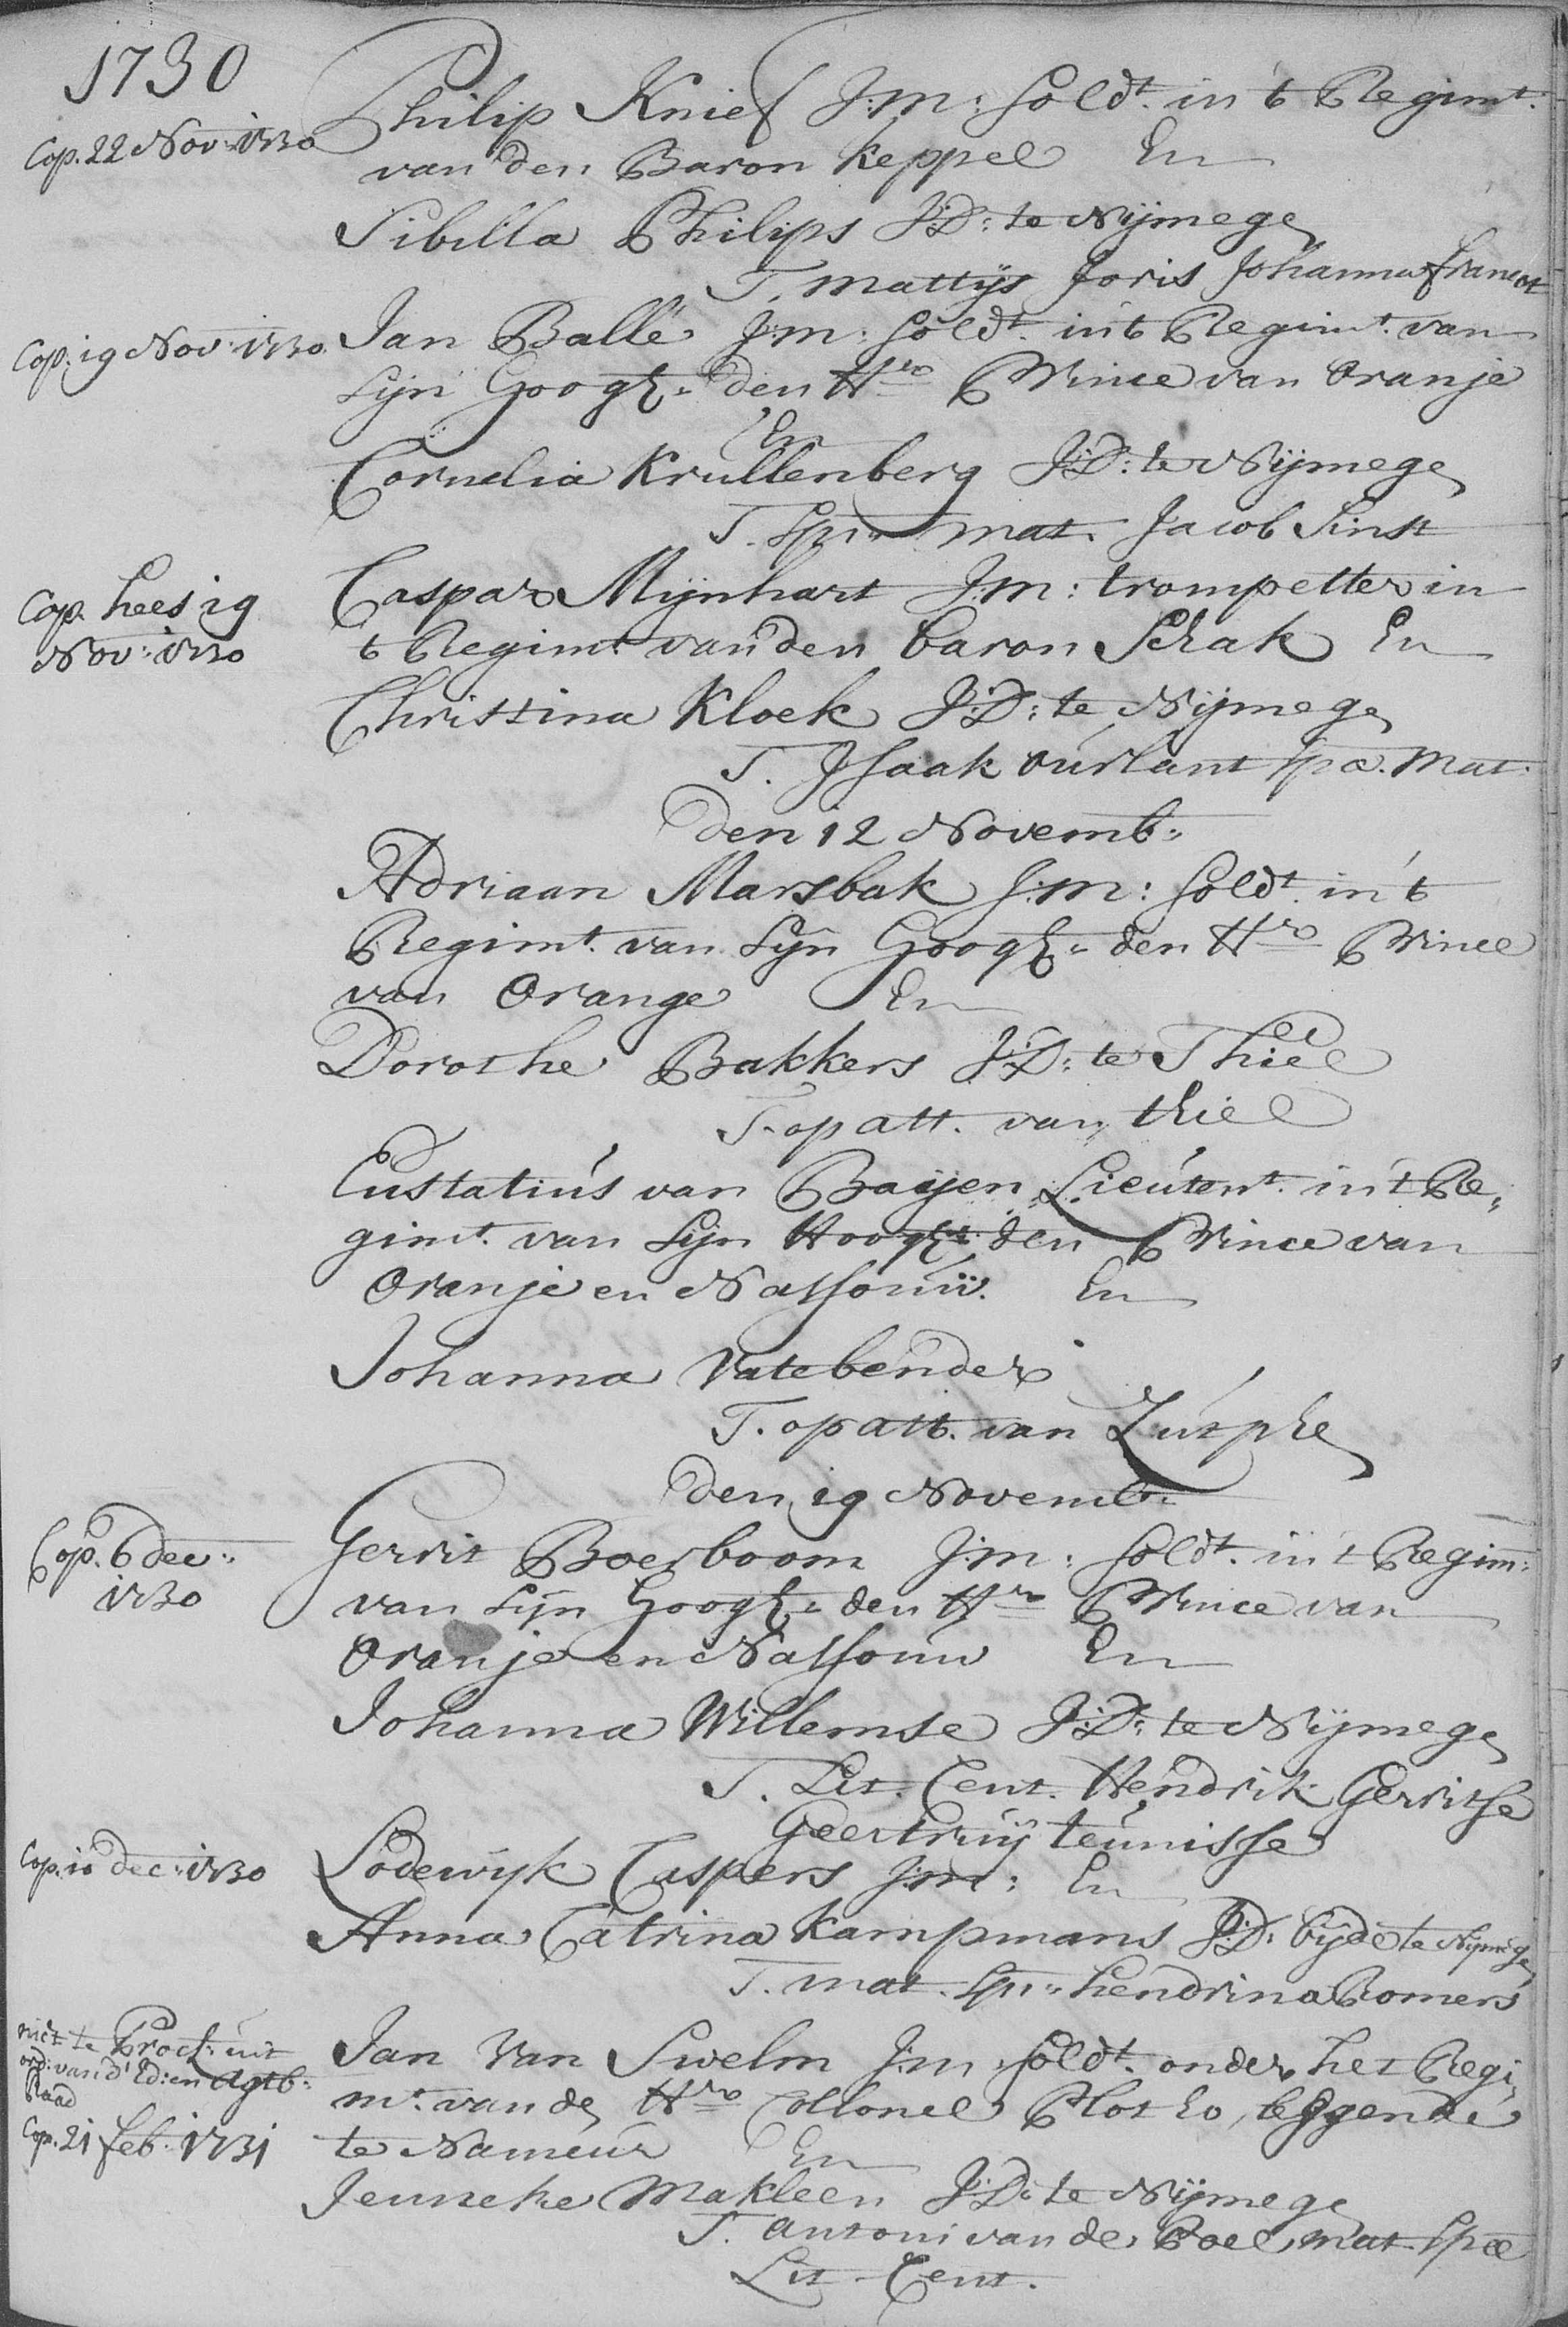 1730
Cop. 22 Nov: 1730
Philip Knief J:m: Soldt. in 't Regimt.
van den Baron Keppel En
Sibilla Philips J:D: te Nijmege
T. Mattijs Joris Johanna
Cop. 19 Nov. 1730.
Jan Ballé J:m: Soldt. in 't Regimt. van
Sijn Hoogh: den Hre Prince van Oranje
En
Cornelia Krullenberg J:D: te Nijmege
T. Spi: mat. Jacob Sinst
Cop. hees 19
Nov: 1730
Caspar Mijnhart J:m: trompetter in
't Regimt. van den baron Schak En
Christina Kloek J:D: te Nijmege
T. Isaak Ourlant Spæ. Mat.
den 12 Novemb:
Adriaan Marsbak J:m: Soldt. in 't
Regimt. van Sijn Hoogh: den Hre Prince
van Orange En
Dorothe Bakkers J:D: te Thiel
T. op att. van thiel
Eustatius van Baijen Lieutent. in 't Re„
gimt. van Sijn Hoogh: den Prince van
Oranje en Nassouw. En
Johanna Vatebender
T. op att. van Zutphe
den 19 Novemb:
Cop. 6 dec:
1730
Gerrit Boerboom J:m: Soldt. in 't Regim:
van Sijn Hoogh: den Hre Prince van
Oranje en Nassouw En
Johanna Willemse J:D: te Nijmege
T. Lit. Cent. Hendrik Gerritse
Geertruij teunisse
Cop. 10 dec: 1730
Lodewijk Caspers J:m: En
Anna Catrina Kampmans J:D: bijde te Nijmege
T. mat. Spi: hendrina Romers
niet te Procl: uit
ord: van d' Ed: en Agtb:
Raad
Cop. 21 feb. 1731
Jan van Swelm J:m: Soldt. onder het Regi„
mt. van de Hre Collonel Plotho, leggende
te Nameur En
Jenneke Makleen J:D: te Nijmege
T. Antoni van de Poel, mat. Spæ
Lit. Cent.